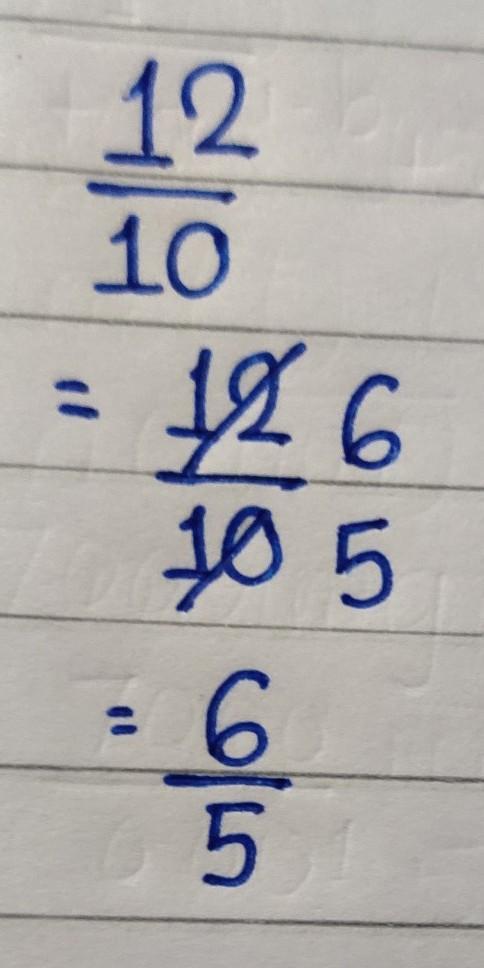 12
10
= 12 6
10 5
= 6
5